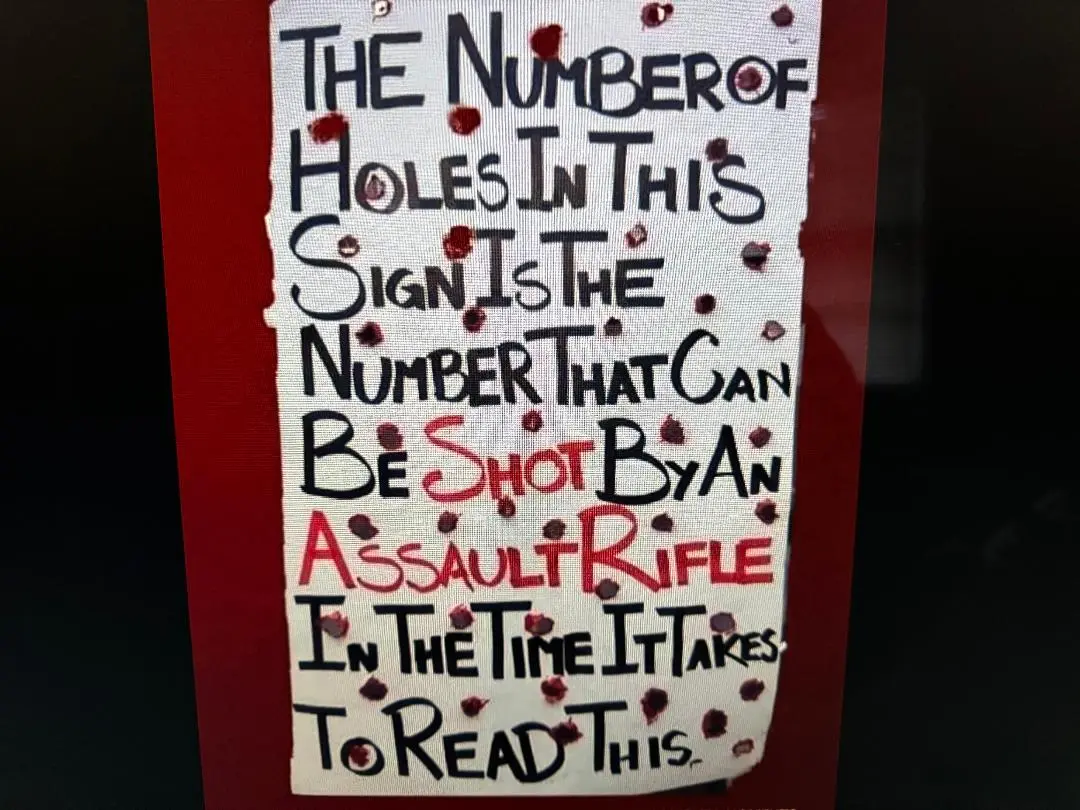 THE NUMBER OF
HOLES IN THIS
SIGN IS THE
NUMBER THAT CAN
BE SHOT BY AN
ASSAULT RIFLE
IN THE TIME IT TAKES
TO READ THIS.